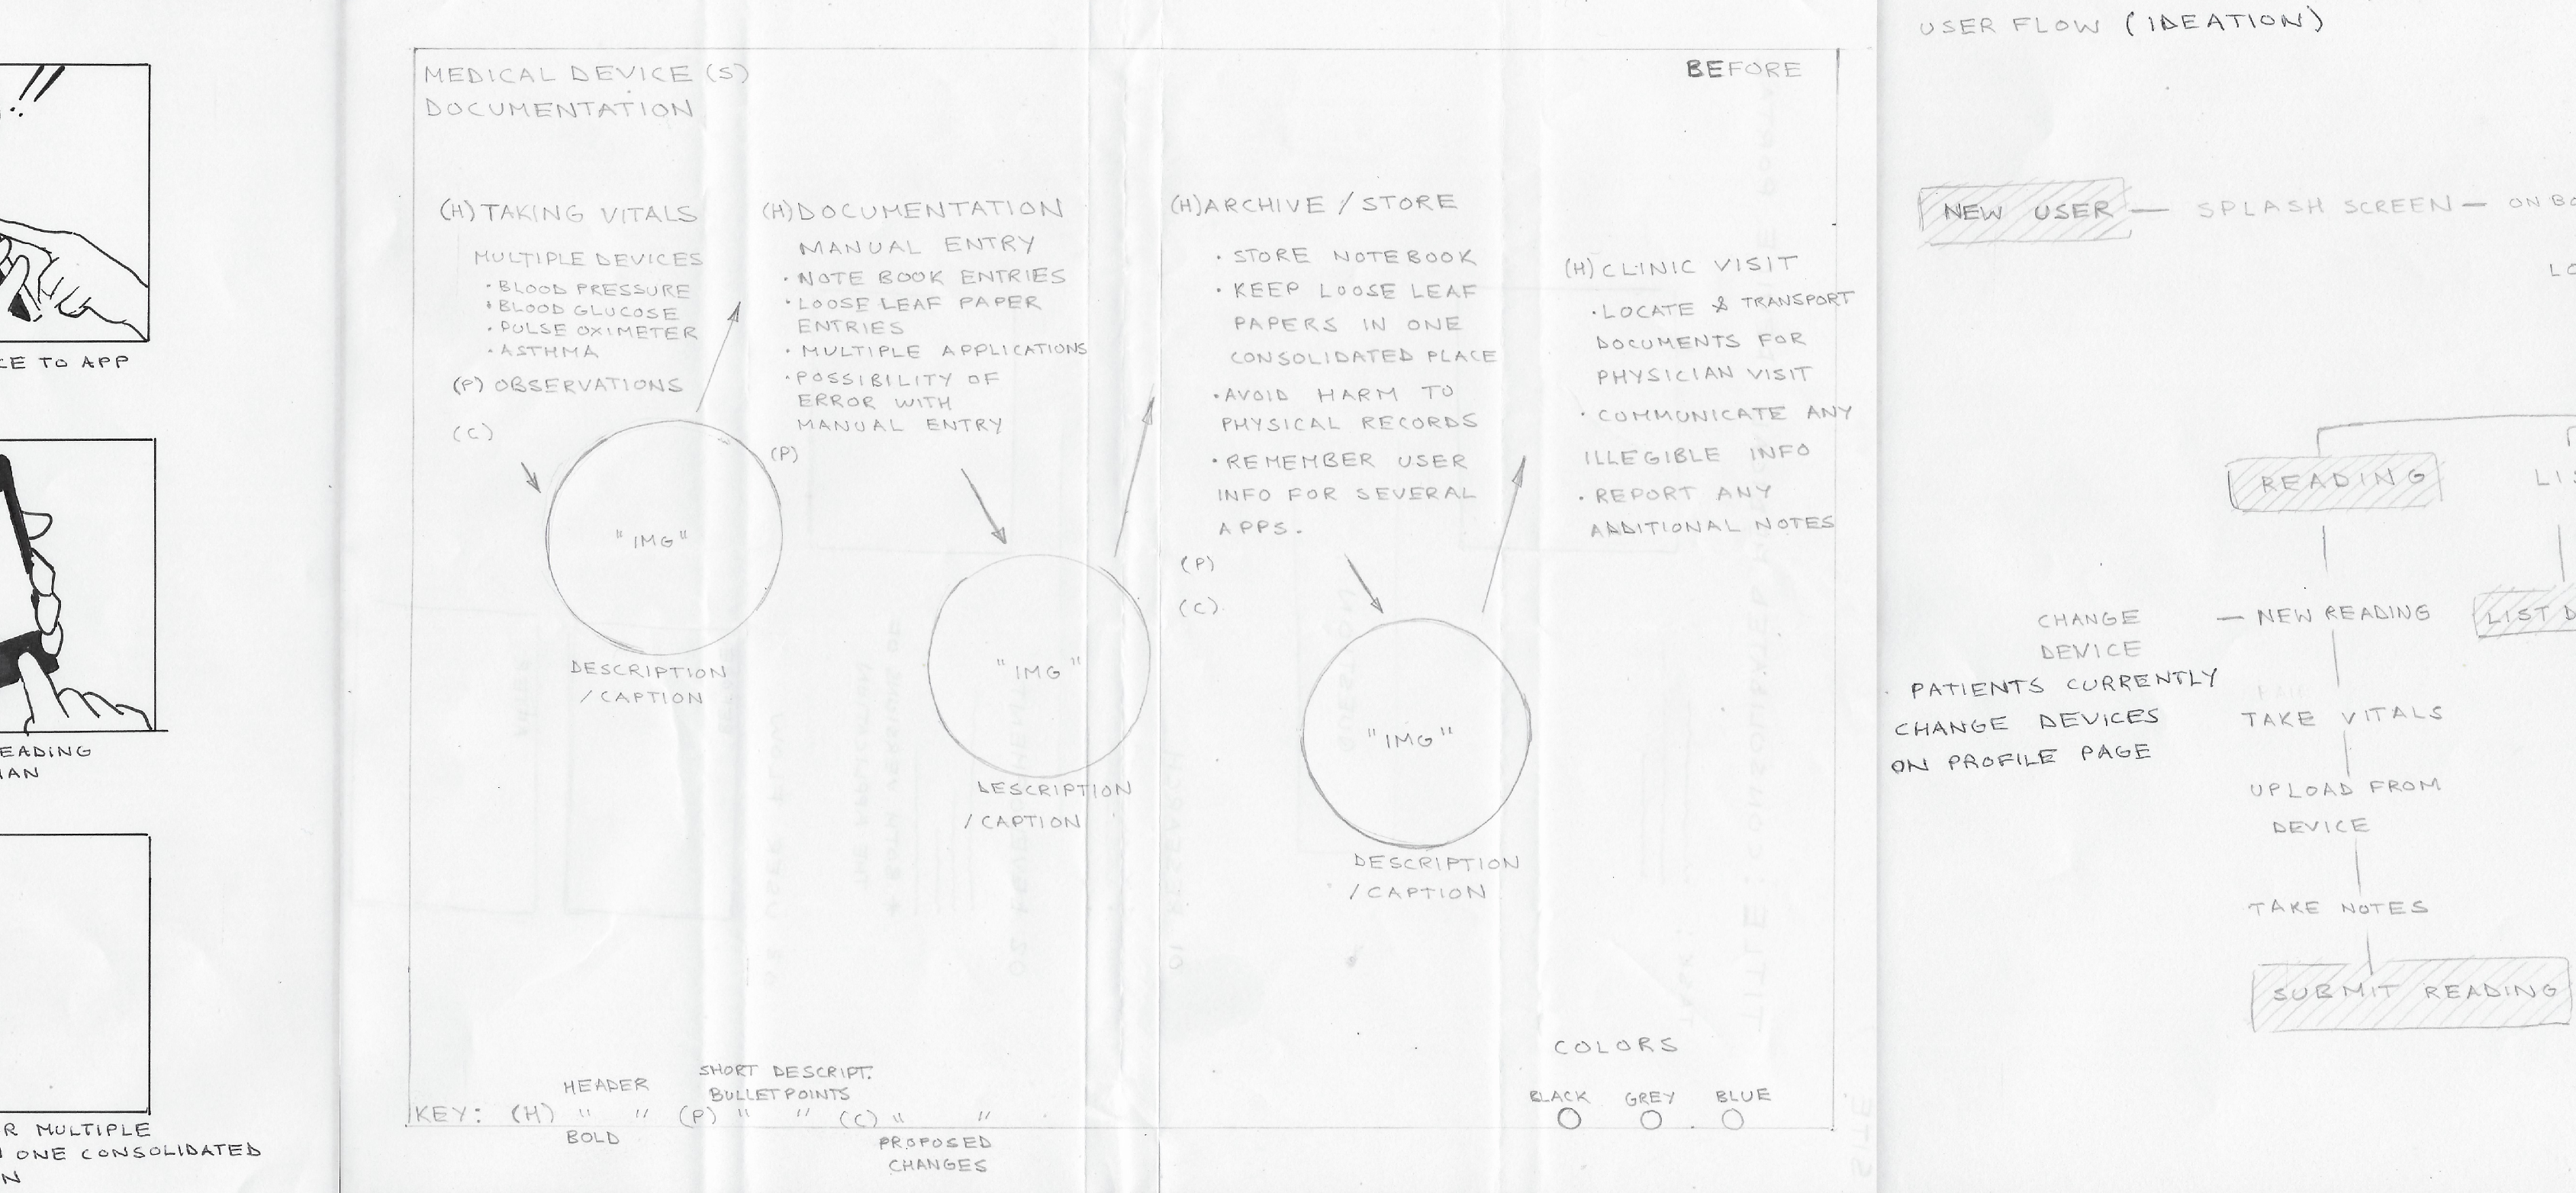 !!
CE TO APP
EADING
IAN
R MULTIPLE
ONE CONSOLIDATED
N
MEDICAL DEVICE (S)
DOCUMENTATION
BEFORE
(H) TAKING VITALS
MULTIPLE DEVICES
• BLOOD PRESSURE
• BLOOD GLUCOSE
• PULSE OXIMETER
• ASTHMA
(P) OBSERVATIONS
(C)
"IMG"
DESCRIPTION
/ CAPTION
(H) DOCUMENTATION
MANUAL ENTRY
• NOTE BOOK ENTRIES
• LOOSE LEAF PAPER
ENTRIES
• MULTIPLE APPLICATIONS
• POSSIBILITY OF
ERROR WITH
MANUAL ENTRY
(P)
"IMG"
DESCRIPTION
/ CAPTION
(H) ARCHIVE / STORE
• STORE NOTEBOOK
• KEEP LOOSE LEAF
PAPERS IN ONE
CONSOLIDATED PLACE
• AVOID HARM TO
PHYSICAL RECORDS
• REMEMBER USER
INFO FOR SEVERAL
APPS.
(P)
(C)
"IMG"
DESCRIPTION
/ CAPTION
(H) CLINIC VISIT
• LOCATE & TRANSPORT
DOCUMENTS FOR
PHYSICIAN VISIT
• COMMUNICATE ANY
ILLEGIBLE INFO
• REPORT ANY
ADDITIONAL NOTES
COLORS
BLACK GREY BLUE
HEADER SHORT DESCRIPT.
BULLET POINTS
KEY: (H) " " (P) " " (C) " "
BOLD PROPOSED
CHANGES
USER FLOW (IDEATION)
NEW USER — SPLASH SCREEN — ON BO
LO
READING
LIS
CHANGE
DEVICE
— NEW READING
LIST D
PATIENTS CURRENTLY
CHANGE DEVICES
ON PROFILE PAGE
TAKE VITALS
UPLOAD FROM
DEVICE
TAKE NOTES
SUBMIT READING